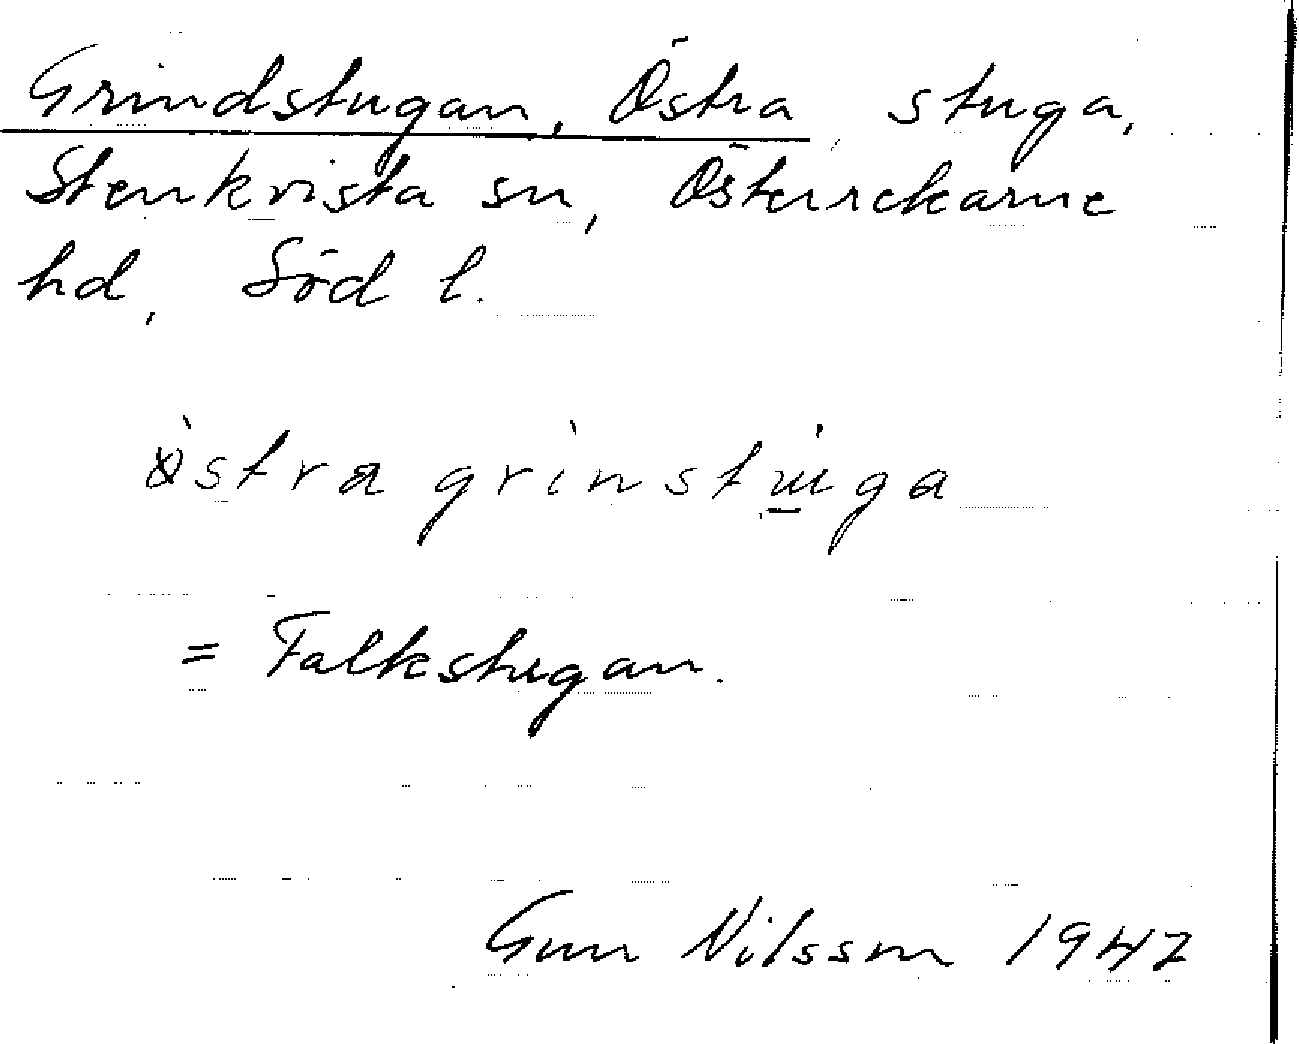 Grindstugan, Östra stuga,
Stenkvista sn, Österrekarne
hd, Söd l.
östra grinstuga
= Falkstugan.
Gun Nilsson 1947